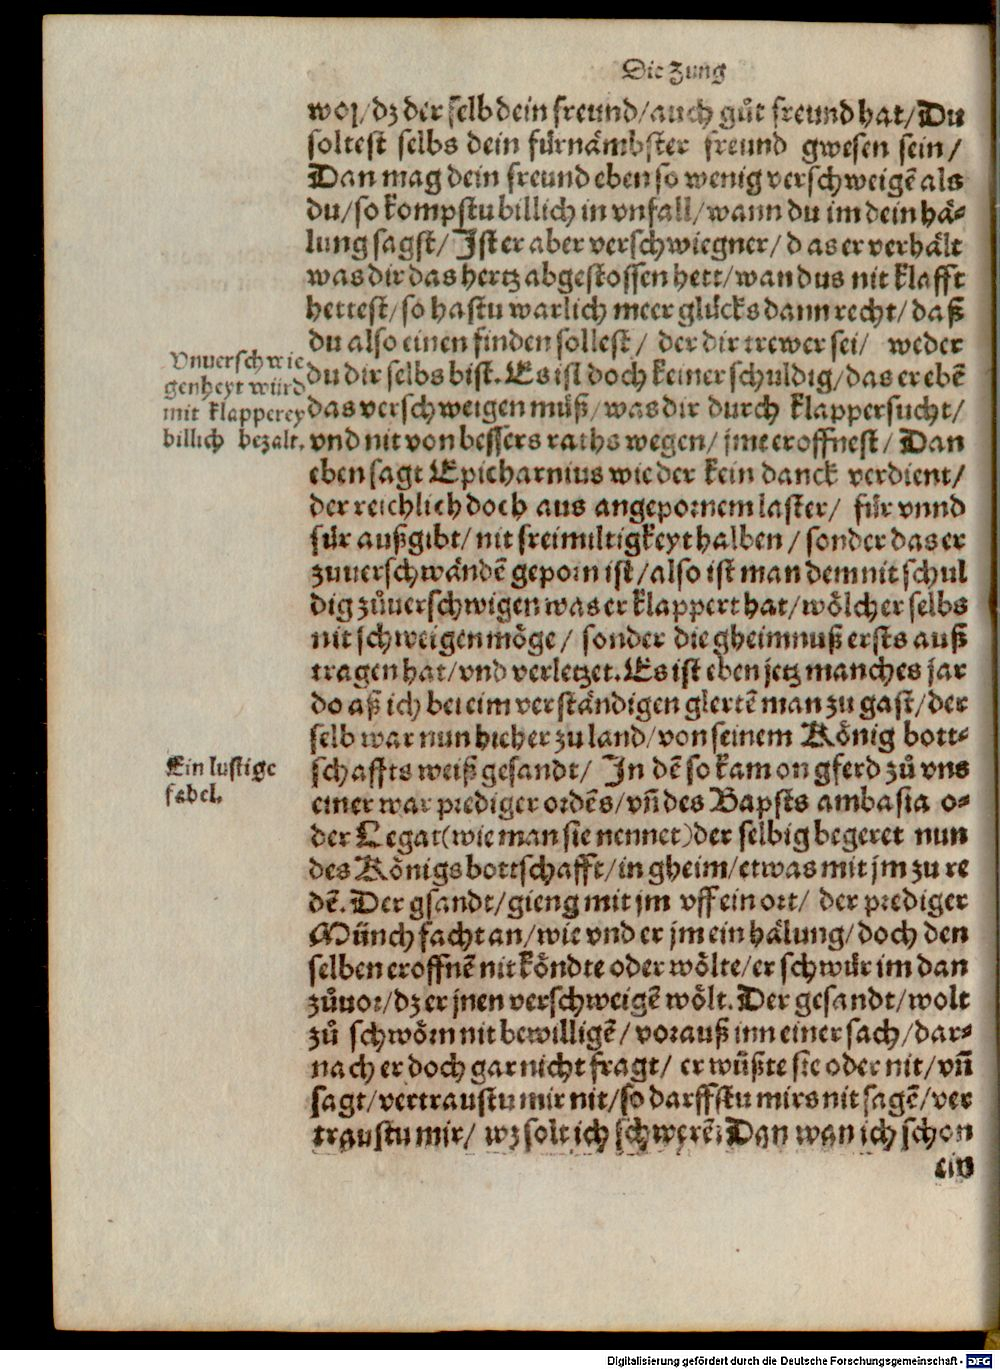 Die Zung
wol/dz der selb dein freund/auch gůt freund hat/Du
soltest selbs dein fürnämbster freund gwesen sein/
Dan mag dein freund eben so wenig verschweigē als
du/so kompstu billich in vnfall/wann du im dein hä⸗
lung sagst/ Ist er aber verschwiegner/das er verhält
was dir das hertz abgestossen hett/wan dus nit klafft
hettest/so hastu warlich meer glücks dann recht/daß
du also einen finden sollest/ der dir trewer sei/ weder
du dir selbs bist. Es ist doch keiner schuldig/das er ebē
das verschweigen müß/was dir durch klappersucht/
vnd nit von bessers raths wegen/ jme eroffnest/ Dan
eben sagt Epicharnius wie der kein danck verdient/
der reichlich doch aus angepornem laster/ für vnnd
für außgibt/nit freimiltigkeyt halben/sonder das er
zuuerschwändē geporn ist/also ist man dem nit schul
dig zůuerschwigen was er klappert hat/wölcher selbs
nit schweigen möge/ sonder die gheimnuß ersts auß
tragen hat/vnd verletzet. Es ist eben jetz manches jar
do aß ich bei eim verständigen glertē man zu gast/der
selb war nun hieher zu land/von seinem König bott⸗
schaffts weiß gesandt/ In dē so kam on gferd zů vns
einer war prediger ordēs/vn̄ des Bapsts ambasia o⸗
der Legat(wie man sie nennet)der selbig begeret nun
des Königs bottschafft/in gheim/etwas mit jm zu re
dē. Der gsandt/gieng mit jm vff ein ort/ der prediger
Münch facht an/wie vnd er jm ein hälung/doch den
selben eroffnē nit köndte oder wölte/er schwür im dan
zůuor/dz er jnen verschweigē wölt. Der gesandt/wolt
zů schwörn nit bewilligē/vorauß inn einer sach/dar⸗
nach er doch gar nicht fragt/ er wüßte sie oder nit/vn̄
sagt/vertraustu mir nit/so darffstu mirs nit sagē/ver
traustu mir/ wz solt ich schwerē? Dan wan ich schon
Vnuerschwie
genheyt würd
mit klapperey
billich bezalt.
Ein lustige
fabel.
Digitalisierung gefördert durch die Deutsche Forschungsgemeinschaft - DFG